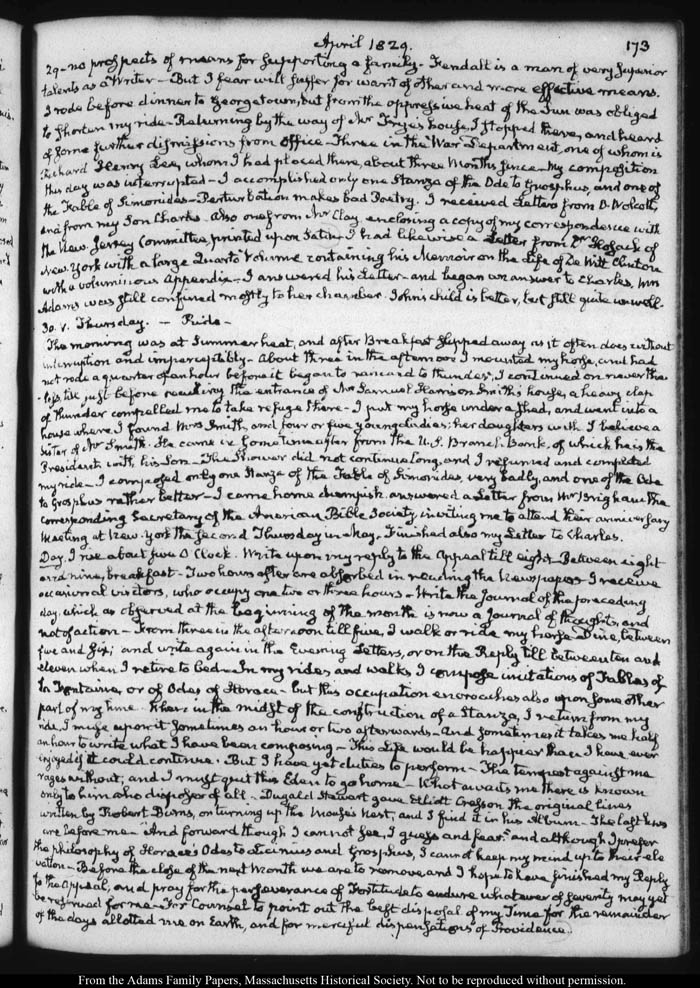 April 1829.
173
29 - no prospects of means for supporting a family - Kendall is a man of very superior
talents as a Writer - But I fear will suffer for want of other and more effective means.
I rode before dinner to Georgetown, but from the oppressive heat of the Sun was obliged
to shorten my ride - Returning by the way of Mr Frye's house, I stopped there, and heard
of some further dismissions from Office - Three in the War Department, one of whom is
Richard Henry Lee, whom I had placed there, about three Months since - My composition
this day was interrupted - I accomplished only one Stanza of the Ode to Grosphus, and one of
the Fable of Simonides - Perturbation makes bad Poetry. I received Letters from O. Wolcott,
and from my Son Charles. Also one from Mr Clay, enclosing a copy of my correspondence with
the New Jersey Committee, printed upon Satin - I had likewise a Letter from Dr Hosack of
New York with a large Quarto Volume containing his Memoir on the Life of De Witt Clinton
with a voluminous Appendix - I answered his Letter - and began an answer to Charles. Mrs
Adams was still confined mostly to her chamber. John's child is better, but still quite unwell.
30. V. Thursday. - Ride -
The morning was at Summer heat, and after Breakfast slipped away as it often does without
interruption and imperceptibly - About three in the afternoon I mounted my horse, and had
not rode a quarter of an hour before it began to thunder; I continued on never the
-less till just before reaching the entrance of Mr Samuel Harrison Smith's house, a heavy clap
of thunder compelled me to take refuge there - I put my horse under a shed, and went into a
house where I found Mrs Smith, and four or five young Ladies; her daughters with I believe a
Sister of Mr Smith. He came in some time after from the U.S. Branch Bank, of which he is the
President, with his Son - The Shower did not continue long, and I returned and completed
my ride - I composed only one Stanza of the Fable of Simonides, very badly, and one of the Ode
to Grosphus rather better - I came home dampish. answered a Letter from Mr Brigham the
corresponding Secretary of the American Bible Society inviting me to attend their anniversary
Meeting at New York the second Thursday in May. Finished also my Letter to Charles.
Day. I rise about five O'Clock. Write upon my reply to the Appeal till eight - Between eight
and nine, breakfast - Two hours after are absorbed in reading the Newspapers - I receive
occasional visitors, who occupy one two or three hours - Write the Journal of the preceding
day, which as observed at the beginning of the month is now a Journal of thoughts, and
not of action - From three in the afternoon till five, I walk or ride my horse - Dine, between
five and six; and write again in the Evening Letters, or on the Reply till between ten and
eleven when I retire to bed - In my rides and walks I compose imitations of Fables of
La Fontaine, or of Odes of Horace - but this occupation encroaches also upon some other
part of my time. When in the midst of the construction of a Stanza, I return from my
ride, I muse upon it sometimes an hour or two afterwards - And sometimes it takes me half
an hour to write what I have been composing - This Life would be happier than I have ever
enjoyed if it could continue. But I have yet duties to perform - The tempest against me
rages without, and I must quit this Eden to go home - What awaits me there is known
only to him who disposes of all - Dugald Stewart gave Elliott Cresson the original lines
written by Robert Burns, on turning up the Mouse's Nest, and I find it in his Album - The last lines
are before me - "And forward though I cannot see, I guess and fear" and although I prefer
the philosophy of Horace's Odes to Licinius and Grosphus, I cannot keep my mind up to their ele
vation - Before the close of the next Month we are to remove, and I hope to have finished my Reply
to the Appeal, and pray for the perseverance of Fortitude to endure whatever of severity may yet
be reserved for me - For Counsel to point out the best disposal of my Time for the remainder
of the days allotted me on Earth, and for merciful dispensations of Providence.
From the Adams Family Papers, Massachusetts Historical Society. Not to be reproduced without permission.